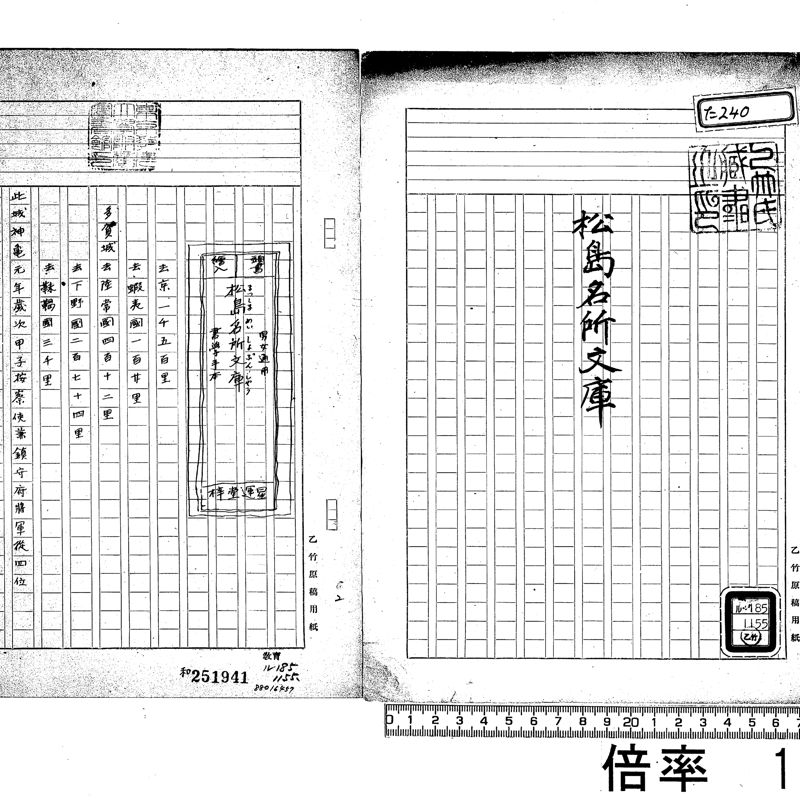 た240
乙竹氏
蔵書
之印
松島名所文庫
乙竹原稿用紙
ルベ185
1155
(乙竹)
頭書
繪入
男女通用
まつしま めいしよ ぶん
松島名所文庫
書學手本
星運堂梓
去京一千五百里
去蝦夷國一百廿里
多賀城 去陸常國四百十二里
去下野國二百七十四里
去靺鞨國三千里
此城神龜元年歲次甲子按察使兼鎮守府將軍從四位
乙竹原稿用紙
教育
ル185
1155
和251941
88016437
0 1 2 3 4 5 6 7 8 9 10 1 2 3 4 5 6 7 8 9 20 1 2 3 4 5 6 7
倍率 1